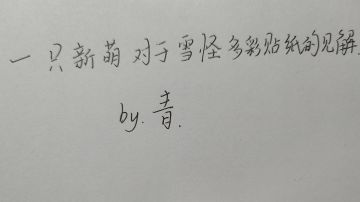 一只新萌对于雪怪多彩贴纸的见解.
by.青.